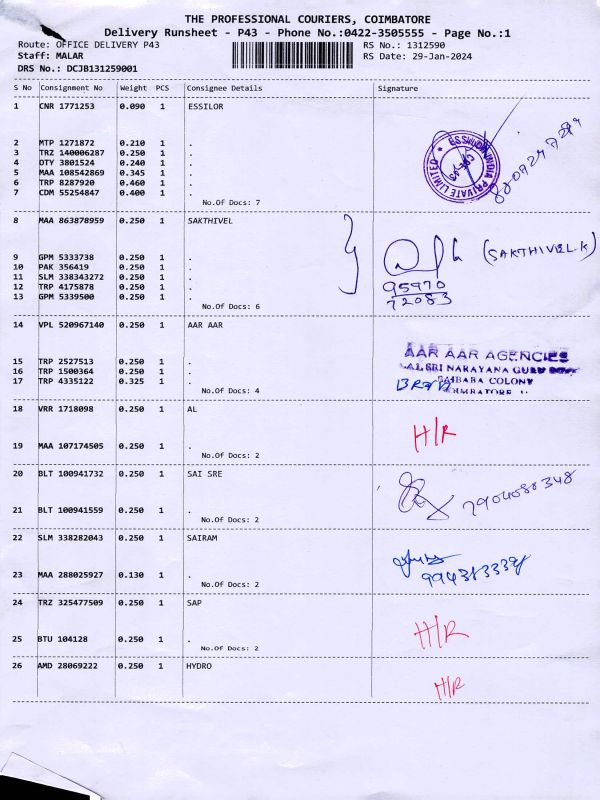 THE PROFESSIONAL COURIERS, COIMBATORE
Delivery Runsheet - P43 - Phone No.:0422-3505555 - Page No.:1
Route: OFFICE DELIVERY P43 RS No.: 1312590
Staff: MALAR RS Date: 29-Jan-2024
DRS No.: DCJB131259001
S No Consignment No Weight PCS Consignee Details Signature
1 CNR 1771253 0.090 1 ESSILOR
2 MTP 1271872 0.210 1 .
3 TRZ 140006287 0.250 1 .
4 DTY 3801524 0.240 1 .
5 MAA 108542869 0.345 1 .
6 TRP 8287920 0.460 1 .
7 CDM 55254847 0.400 1 .
No.Of Docs: 7
8 MAA 863878959 0.250 1 SAKTHIVEL
9 GPM 5333738 0.250 1 .
(SAKTHIVEL.K)
10 PAK 356419 0.250 1 .
11 SLM 338343272 0.250 1 .
12 TRP 4175878 0.250 1 .
95970
13 GPM 5339500 0.250 1 .
72083
No.Of Docs: 6
14 VPL 520967140 0.250 1 AAR AAR
AAR AAR AGENCIES
15 TRP 2527513 0.250 1 .
16 TRP 1500364 0.250 1 .
SRI NARAYANA GURU
17 TRP 4335122 0.325 1 .
SAIBABA COLONY
No.Of Docs: 4
18 VRR 1718098 0.250 1 AL
H/R
19 MAA 107174505 0.250 1 .
No.Of Docs: 2
20 BLT 100941732 0.250 1 SAI SRE
7904080348
21 BLT 100941559 0.250 1 .
No.Of Docs: 2
22 SLM 338282043 0.250 1 SAIRAM
23 MAA 288025927 0.130 1 .
No.Of Docs: 2
24 TRZ 325477509 0.250 1 SAP
H/R
25 BTU 104128 0.250 1 .
No.Of Docs: 2
26 AMD 28069222 0.250 1 HYDRO
H/R